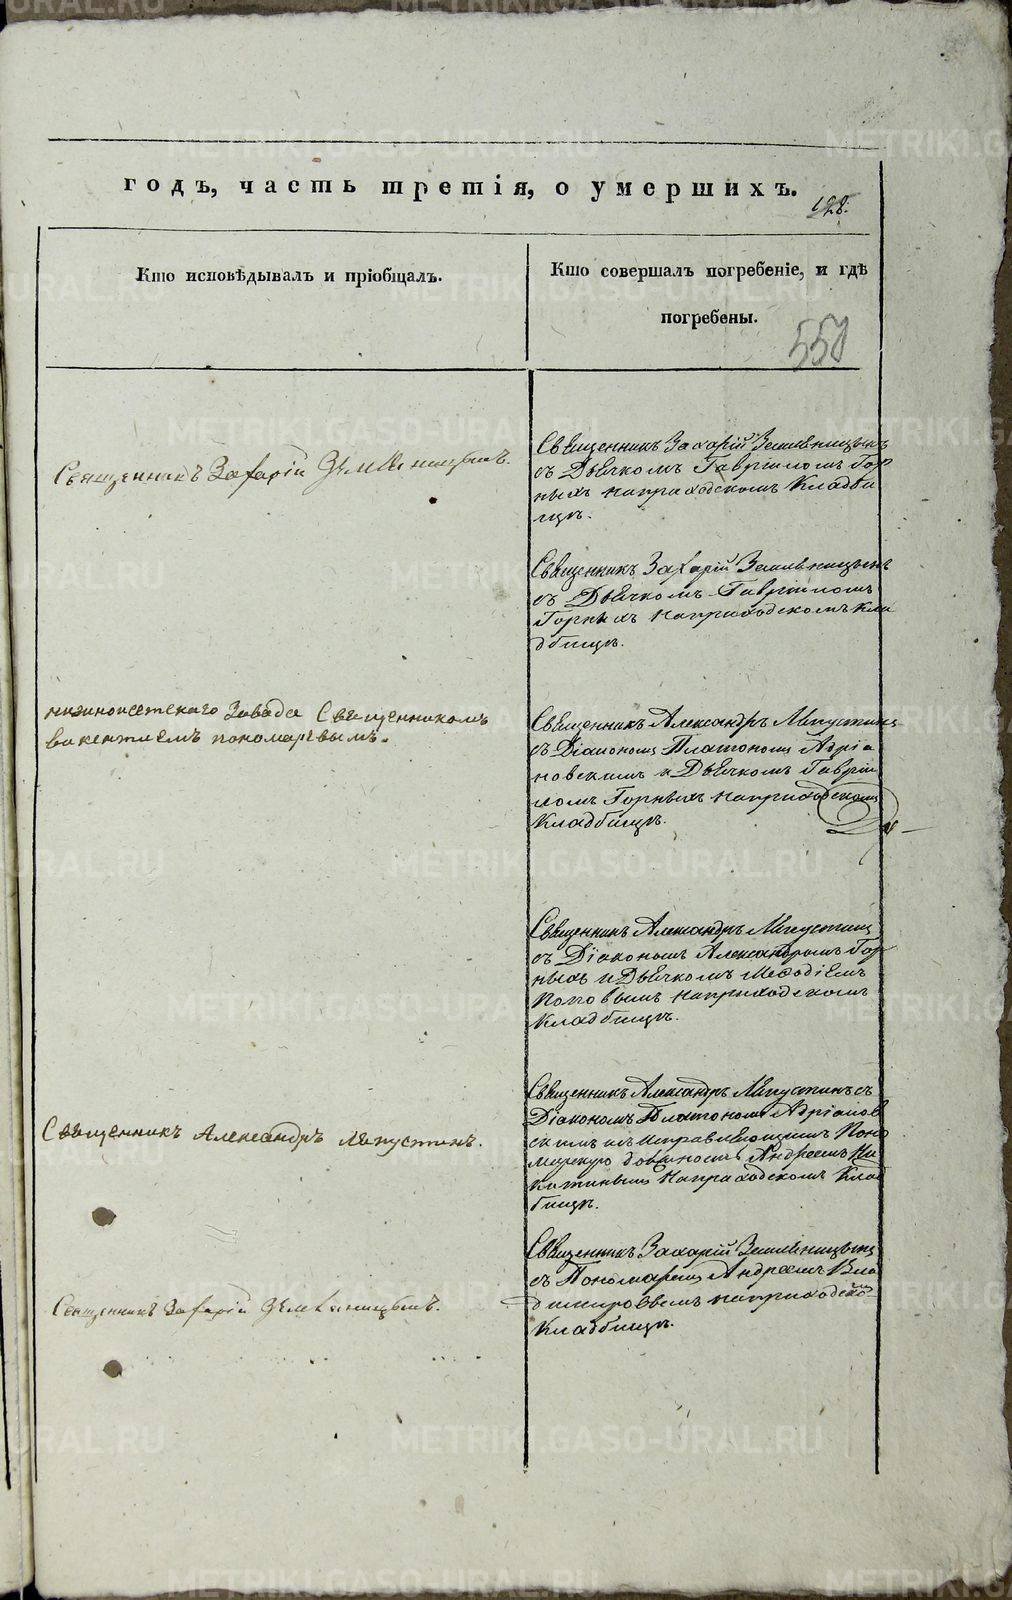 годъ, часть третія, о умершихъ.
128.
Кто исповѣдывалъ и пріобщалъ.
Кто совершалъ погребеніе, и гдѣ
погребены.
550
Священникъ Захарій Земляницынъ.
Священникъ Захарій Земляницынъ
съ Дьячкомъ Гавріиломъ Гор
ныхъ наприходскомъ Кладби
щѣ.
Священникъ Захарій Земляницынъ
съ Дьячкомъ Гавріиломъ
Горныхъ наприходскомъ Кла
дбищѣ.
нижноисетскаго Завода Священникомъ
викентіемъ пономаревымъ.
Священникъ Александръ Мипустинъ
съ Діакономъ Платономъ Адріа
новскимъ и Дьячкомъ Гавріи
ломъ Горныхъ наприходскомъ
Кладбищѣ.
Священникъ Александръ Мипустинъ
съ Діакономъ Александромъ Гор
ныхъ и Дьячкомъ Меѳодіемъ
Поповымъ наприходскомъ
Кладбищѣ.
Священникъ Александръ Мипустинъ.
Священникъ Александръ Мипустинъ съ
Діакономъ Платономъ Адріанов
скимъ и исправляющимъ Поно
марскую должность Андреемъ Ни
китинымъ наприходскомъ Клад
бищѣ.
Священникъ Захарій Земляницынъ.
Священникъ Захарій Земляницынъ
съ Пономаремъ Андреемъ Вла
диміровымъ наприходско
Кладбищѣ.